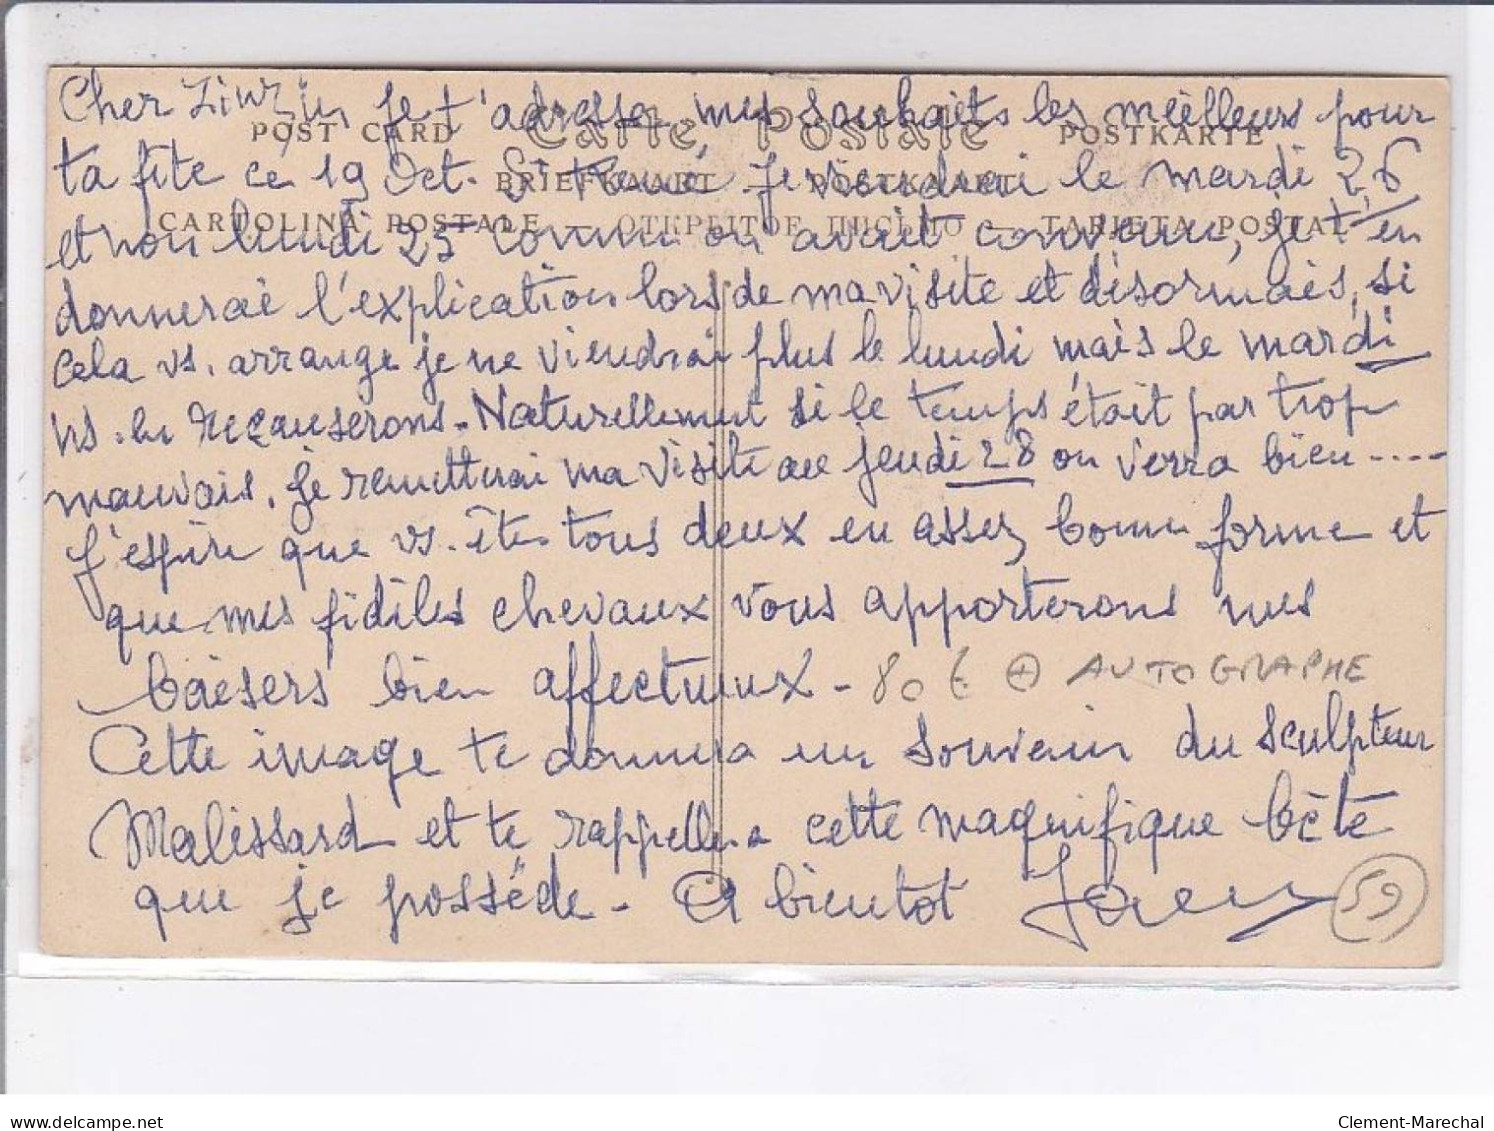 Cher je t'adresse mes souhaits les meilleurs pour
POST CARD Carte Postale POSTKARTE
ta fête ce 19 Oct. St René, je viendrai le mardi 26
BRIEFKAART POSTKAART
CARTOLINA POSTALE — ОТКРЫТОЕ ПИСЬМО — TARJETA POSTAL
et non lundi 25 comme on avait convenu, je t'en
donnerai l'explication lors de ma visite et désormais, si
cela vs. arrange je ne viendrai plus le lundi mais le mardi
ns. en recauserons. Naturellement si le temps était par trop
mauvais, je remettrai ma visite au jeudi 28 on verra bien ....
J'espère que vs. êtes tous deux en assez bonne forme et
que mes fidèles chevaux vous apporterons mes
baisers bien affectueux - 80 € + AUTOGRAPHE
Cette image te donnera un souvenir du sculpteur
Malissard et te rappellera cette magnifique bête
que je possède. A bientot
59
delcampe.net
Clement-Marechal